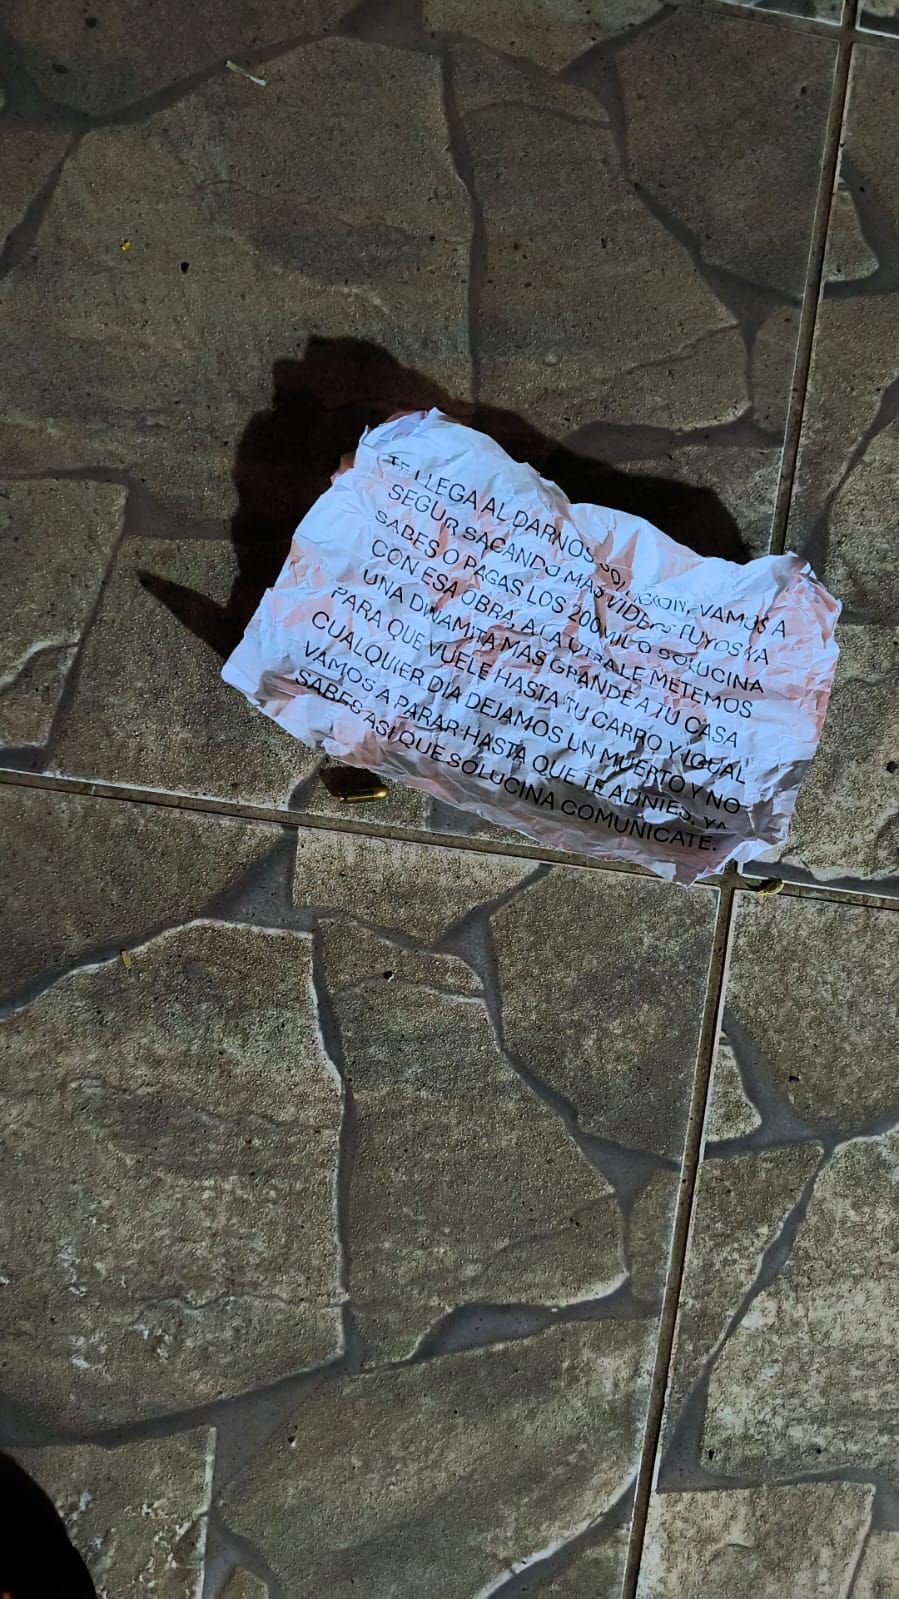 TE LLEGA AL DARNOS SOLUCION, VAMOS A
SEGUR SACANDO MAS VIDEOS TUYOS YA
SABES O PAGAS LOS 200MIL O SOLUCINA
CON ESA OBRA, A LA LE METEMOS
UNA DINAMITA MAS GRANDE A TU CASA
PARA QUE VUELE HASTA TU CARRO Y IGUAL
CUALQUIER DIA DEJAMOS UN MUERTO Y NO
VAMOS A PARAR HASTA QUE TE ALINIES. YA
SABES ASI QUE SOLUCINA COMUNICATE.